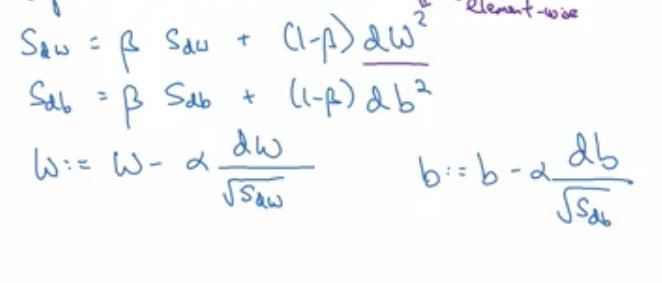 element-wise
S_dw = β S_dw + (1-β) dw²
S_db = β S_db + (1-β) db²
w := w - α dw/√S_dw    b := b - α db/√S_db